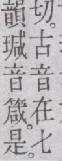 切。古音在七
韻。瑊音箴。是